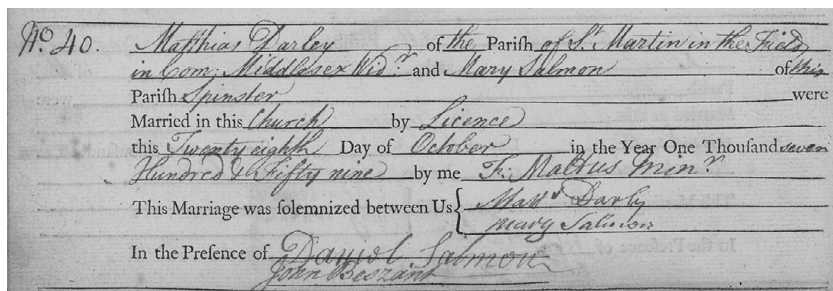 No. 40. Matthias Darley of the Parish of St. Martin in the Field
in Com; Middlesex Widr. and Mary Salmon of this
Parish Spinster were
Married in this Church by Licence
this Twenty eighth Day of October in the Year One Thousand seven
Hundred & Fifty nine by me F: Maltus Minr.
This Marriage was solemnized between Us { Mattw Darly
Mary Salmon
In the Presence of Daniel Salmon
John Beszant